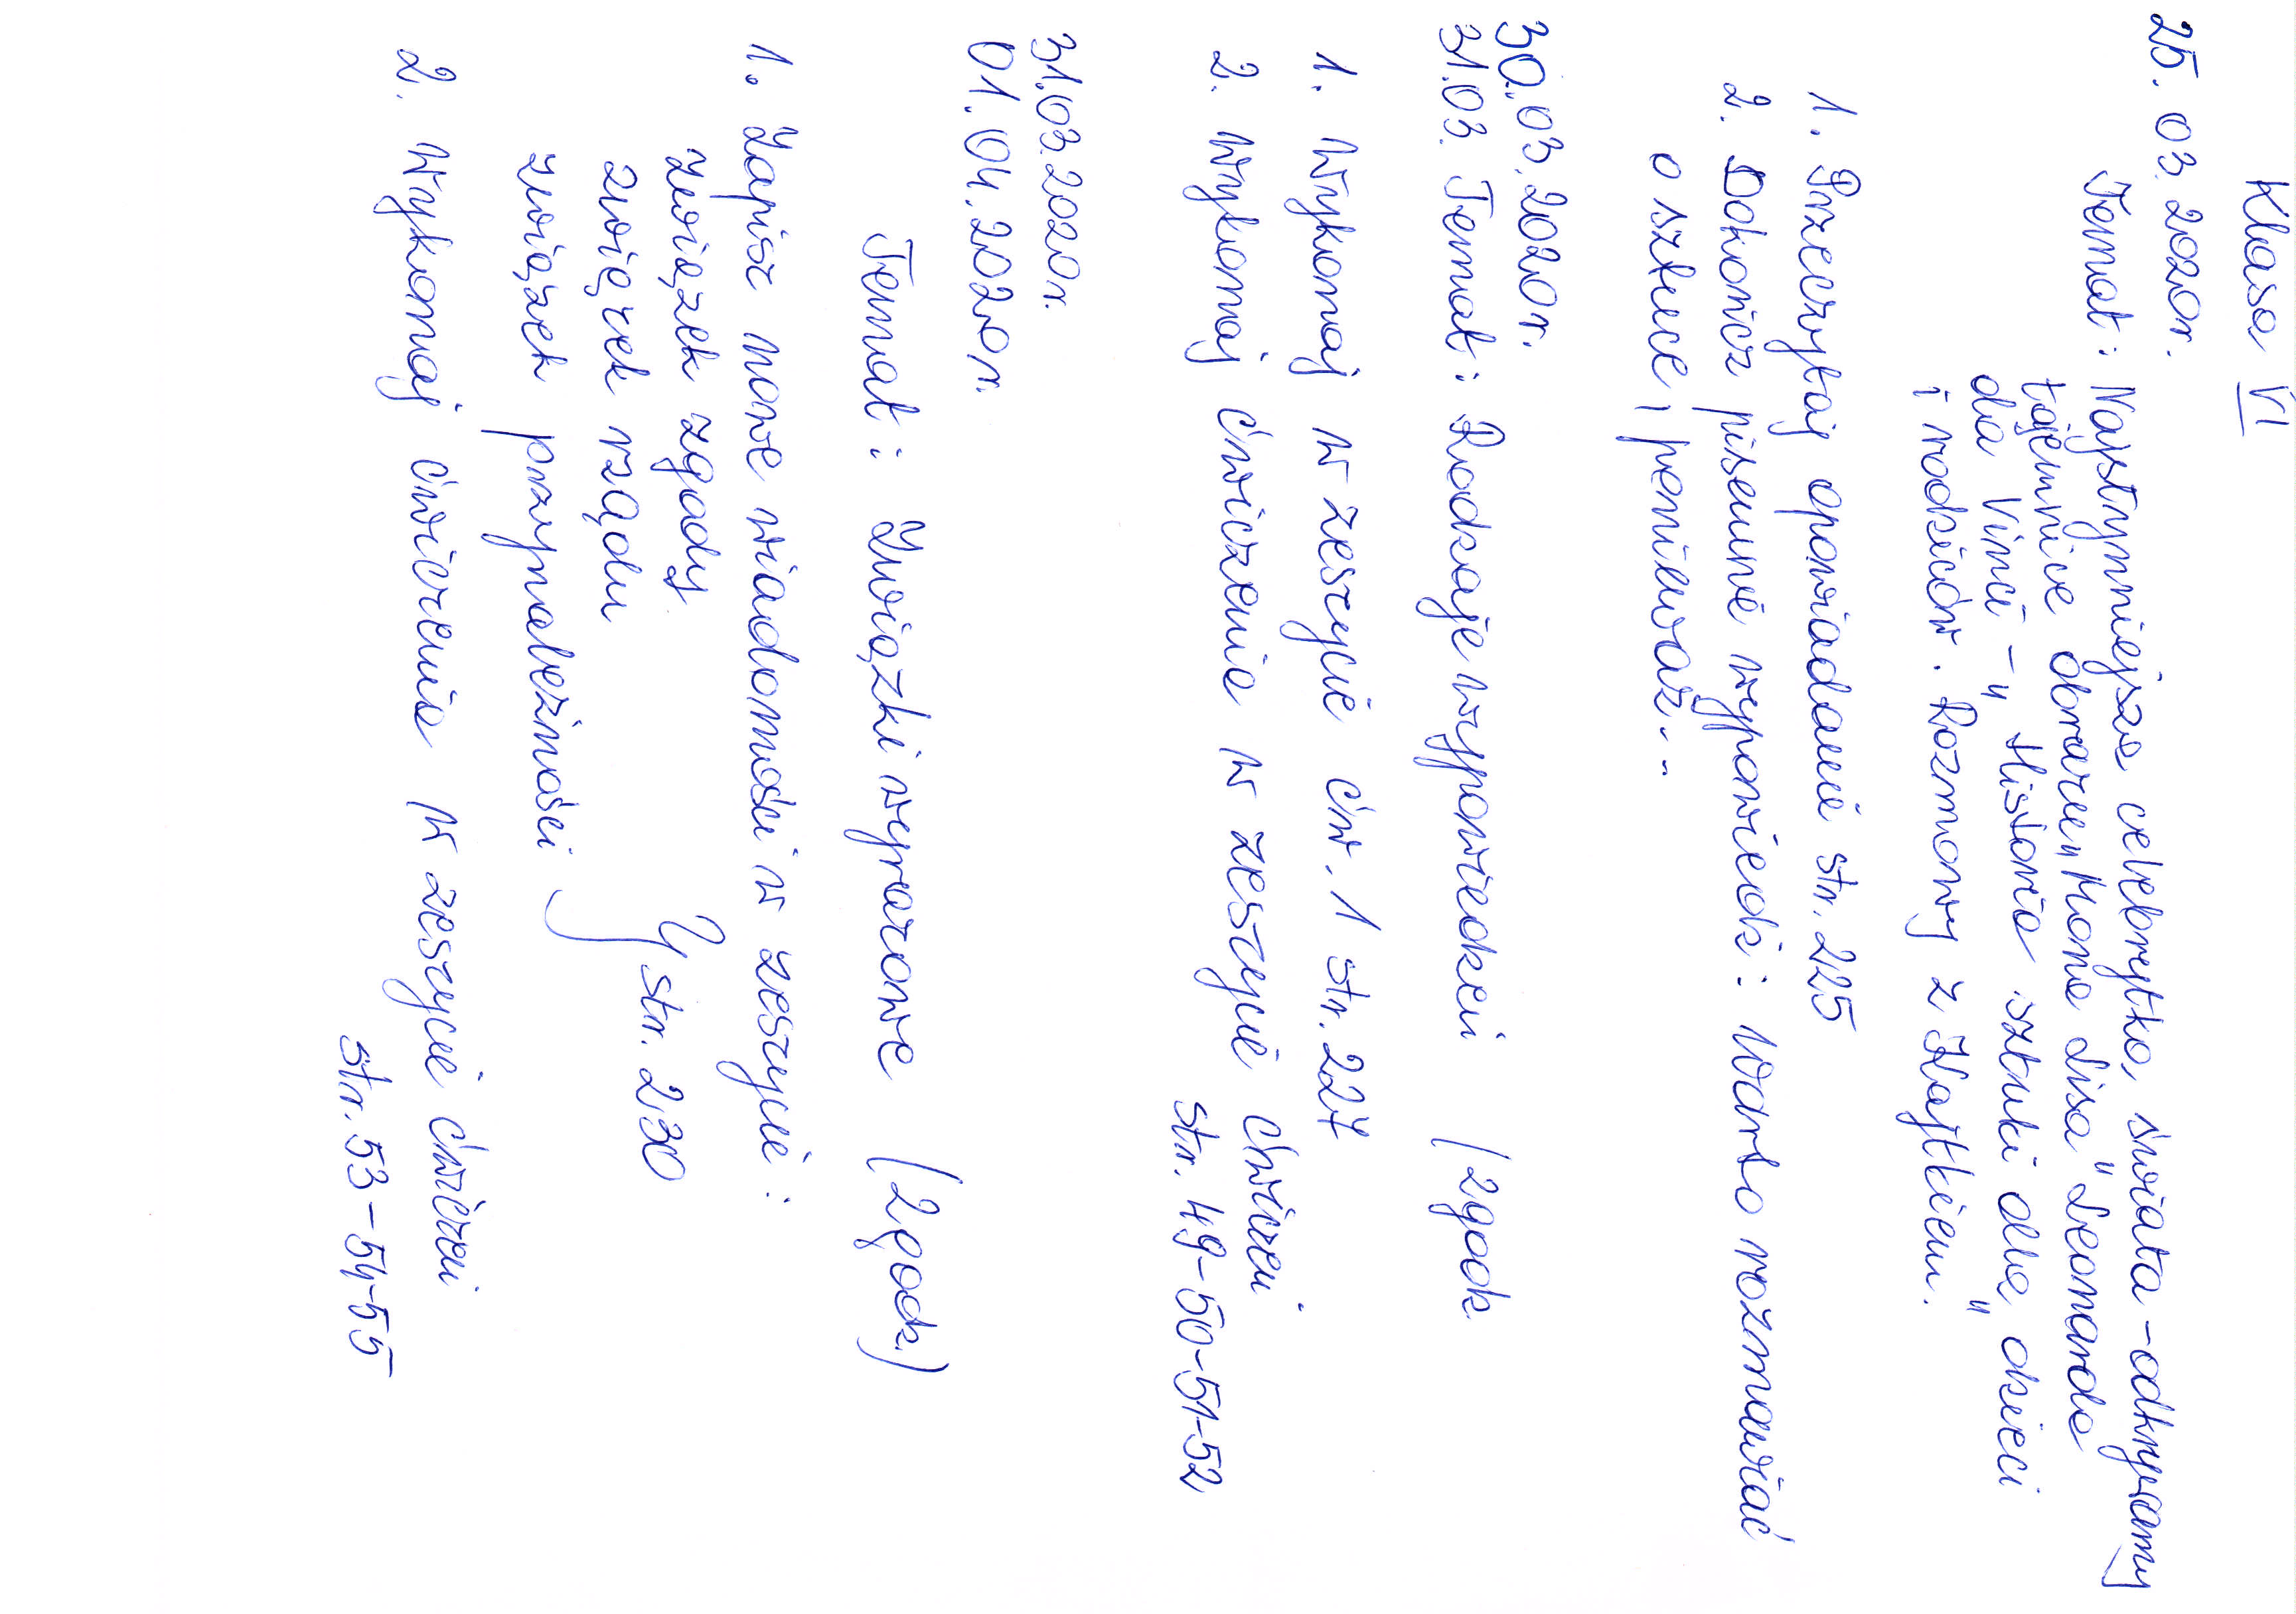 Klasa VI
25.03.2020r.
Temat: Najsłynniejsza celebrytka świata - odkrywamy
tajemnice obrazu "Mona Lisa" Leonarda
da Vinci - "Historia sztuki dla dzieci
i rodziców. Rozmowy z Kajtkiem."
1. Przeczytaj opowiadanie str. 225
2. Dokończ pisemnie wypowiedź: Warto rozmawiać
o sztuce, ponieważ...
30.03.2020r.
31.03. Temat: Rodzaje wypowiedzeń (2godz.
1. Wykonaj w zeszycie ćw. 1 str. 227
2. Wykonaj ćwiczenie w zeszycie ćwiczeń
str. 49-50-51-52
31.03.2020r.
01.04.2020r.
Temat: Związki wyrazowe (2godz.)
1. Zapisz nowe wiadomości w zeszycie:
związek zgody
związek rządu } str. 230
związek przynależności
2. Wykonaj ćwiczenia w zeszycie ćwiczeń
str. 53-54-55